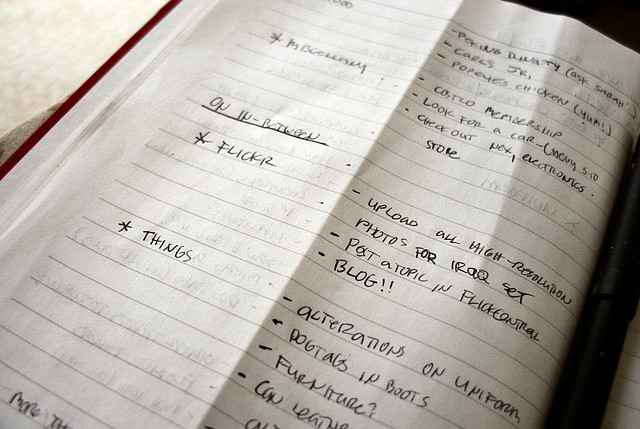 * MISCELLANY
- PEKING DYNASTY (ASK SARAH)
- CARL'S JR.
- POPEYE'S CHICKEN (YUM!)
- COSTCO MEMBERSHIP
- LOOK FOR A CAR - CHEVY S-10
- CHECKOUT NEX, ELECTRONICS
STORE
ON IN-BETWEEN
* FLICKR
- UPLOAD ALL HIGH-RESOLUTION
PHOTOS FOR IRAQ SET
- POST A TOPIC IN FLICKCENTRAL
- BLOG!!
* THINGS
- ALTERATIONS ON UNIFORM
- DOGTAGS IN BOOTS
- FURNITURE?
- CAN
MORE